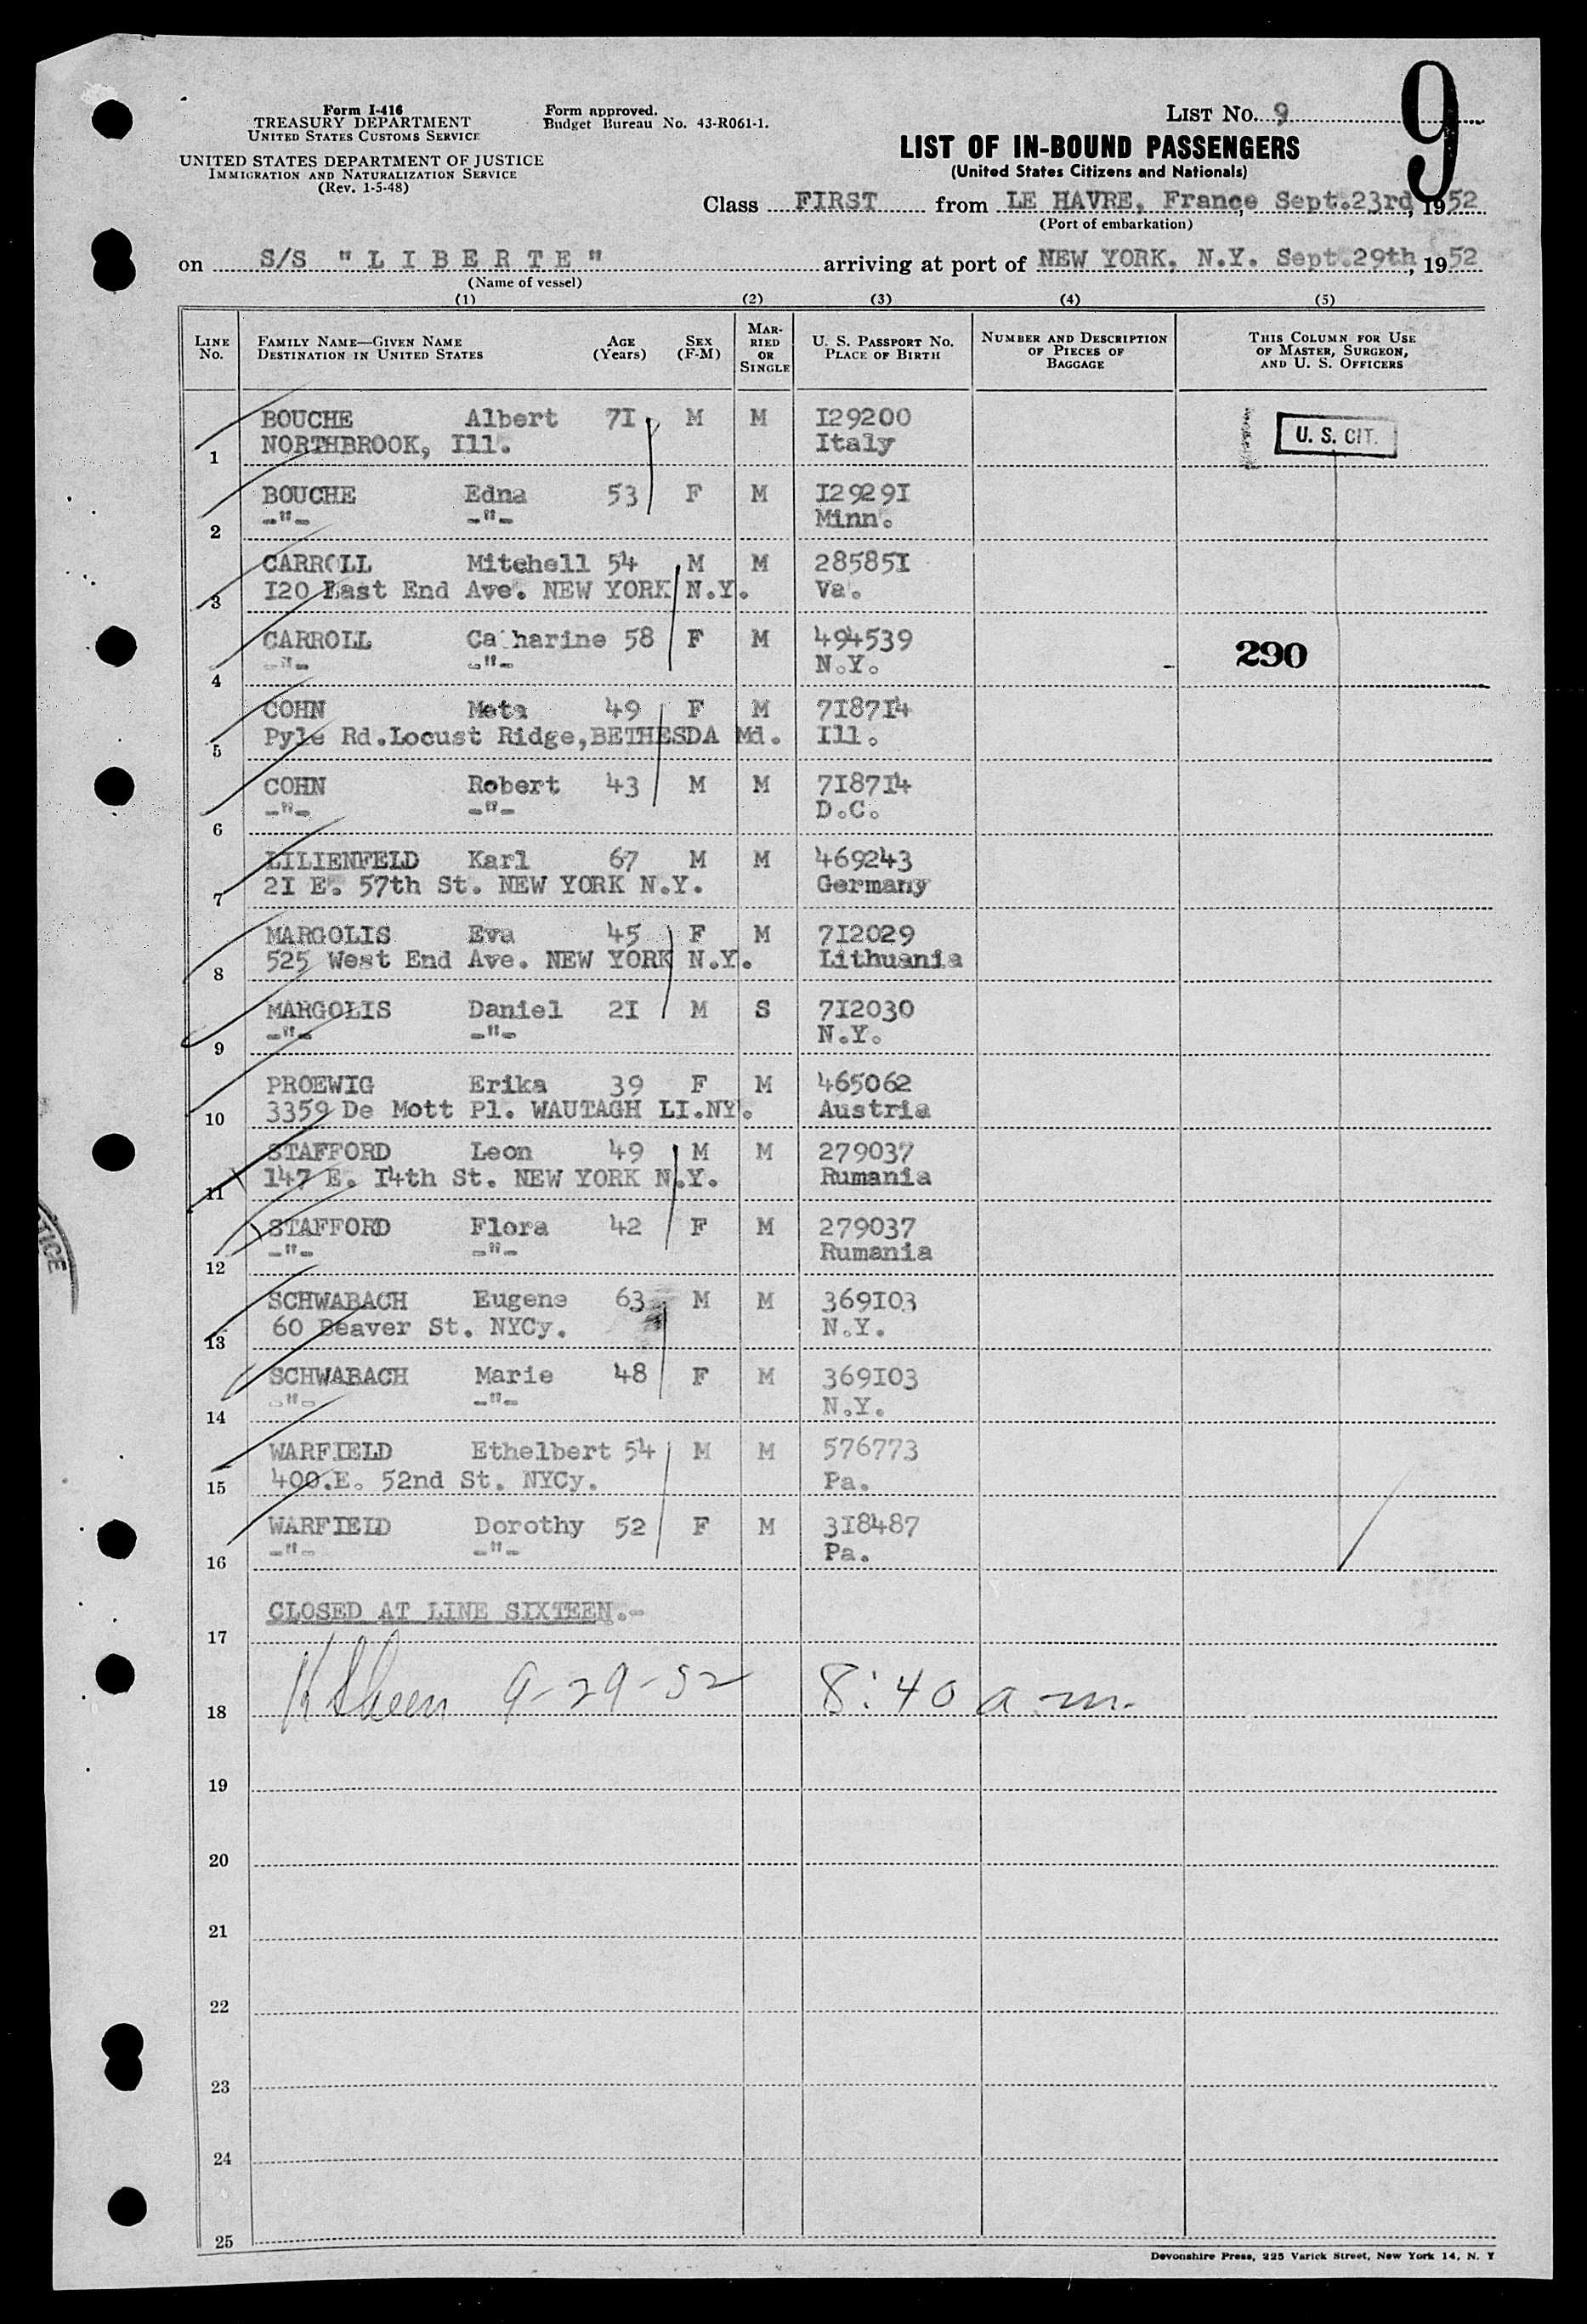 9
Form I-416
TREASURY DEPARTMENT
UNITED STATES CUSTOMS SERVICE
UNITED STATES DEPARTMENT OF JUSTICE
IMMIGRATION AND NATURALIZATION SERVICE
(Rev. 1-5-48)
Form approved.
Budget Bureau No. 43-R061-1.
LIST No. 9
LIST OF IN-BOUND PASSENGERS
(United States Citizens and Nationals)
Class FIRST from LE HAVRE, France, Sept.23rd, 1952
(Port of embarkation)
on S/S "LIBERTE" arriving at port of NEW YORK, N.Y. Sept.29th, 1952
(Name of vessel)
(1) (2) (3) (4) (5)
LINE No. FAMILY NAME—GIVEN NAME DESTINATION IN UNITED STATES AGE (Years) SEX (F-M) MARRIED OR SINGLE U. S. PASSPORT No. PLACE OF BIRTH NUMBER AND DESCRIPTION OF PIECES OF BAGGAGE THIS COLUMN FOR USE OF MASTER, SURGEON, AND U. S. OFFICERS
BOUCHE Albert 7I M M I29200
1 NORTHBROOK, Ill. Italy
U. S. CIT.
BOUCHE Edna 53 F M I2929I
2 -"- -"- Minn.
CARROLL Mitchell 54 M M 28585I
3 I20 East End Ave. NEW YORK N.Y. Va.
CARROLL Catharine 58 F M 494539
4 -"- -"- N.Y.
290
COHN Meta 49 F M 7I87I4
5 Pyle Rd.Locust Ridge,BETHESDA Md. Ill.
COHN Robert 43 M M 7I87I4
6 -"- -"- D.C.
LILIENFELD Karl 67 M M 469243
7 2I E. 57th St. NEW YORK N.Y. Germany
MARGOLIS Eva 45 F M 7I2029
8 525 West End Ave. NEW YORK N.Y. Lithuania
MARGOLIS Daniel 2I M S 7I2030
9 -"- -"- N.Y.
PROEWIG Erika 39 F M 465062
10 3359 De Mott Pl. WAUTAGH LI.NY. Austria
STAFFORD Leon 49 M M 279037
11 147 E. I4th St. NEW YORK N.Y. Rumania
STAFFORD Flora 42 F M 279037
12 -"- -"- Rumania
SCHWABACH Eugene 63 M M 369I03
13 60 Beaver St. NYCy. N.Y.
SCHWABACH Marie 48 F M 369I03
14 -"- -"- N.Y.
WARFIELD Ethelbert 54 M M 576773
15 400.E. 52nd St. NYCy. Pa.
WARFIELD Dorothy 52 F M 3I8487
16 -"- -"- Pa.
CLOSED AT LINE SIXTEEN.-
17
18 9-29-52 8:40 a.m.
19
20
21
22
23
24
25
TICE
Devonshire Press, 225 Varick Street, New York 14, N. Y